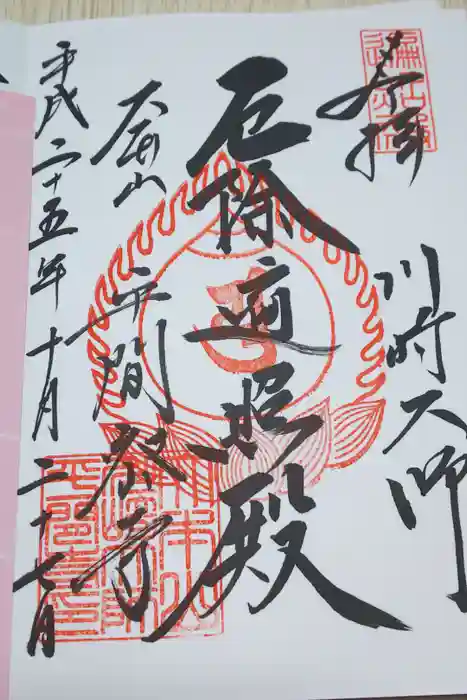 奉拝
川崎大師
厄除遍照殿
金剛山
平間教寺
平成二十五年十月二十七日